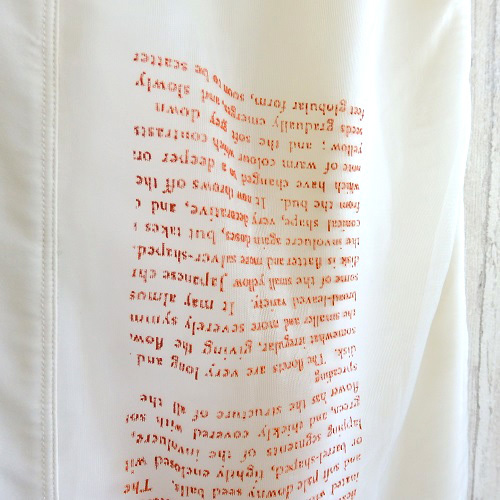 and soft pale downy seed balls. The
or barrel-shaped, tightly enclosed wit
lapping segments of the involucre,
green, and thickly covered with sof
flower has the structure of all the
spreading
disk. The florets are very long and
somewhat irregular, giving the flow
the smaller and more severely symm
broad-leaved variety. It may almos
some of the small yellow Japanese chr
disk is flatter and more silver-shaped.
the involucre again closes, but takes a
conical shape, very decorative, and c
from the bud. It now throws off the
which have changed to a deeper or
note of warm colour which contrasts
yellow ; and the soft grey down
seeds gradually emerges, and slowly
fect globular form, soon to be scatter